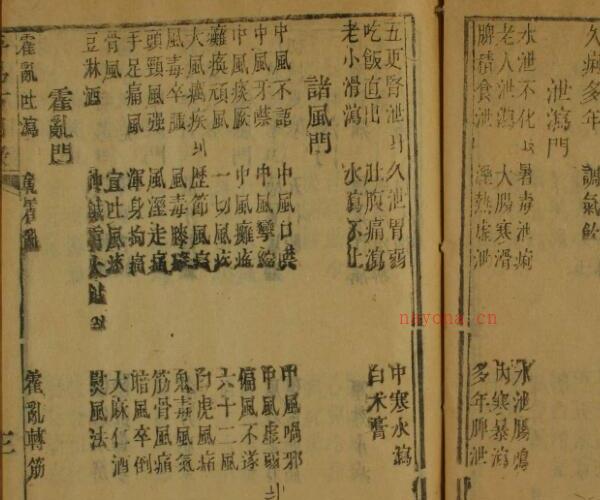 久病多年 調氣飲
泄瀉門
水泄不化 暑毒泄痢 水泄腸鳴
老人泄瀉 大腸寒滑 內寒暴瀉
脾積食泄 溼熱虛泄 多年脾泄
五更腎泄 久泄胃弱 中寒水瀉
吃飯直出 肚腹痛瀉 白朮膏
老小滑瀉 水瀉不止
諸風門
中風不語 中風口噤 中風喎邪
中風牙噤 中風攣縮 中風虛弱
中風痰厥 中風癱瘓 偏風不遂
癱瘓頑風 一切風疾 六十二風
大風癘疾 歷節風痛 白虎風痛
風毒卒 風毒膝痛 鬼毒風氣
頭頸風強 風溼走痛 筋骨風痛
手足痛風 渾身拘痛 暗風卒倒
骨風 宜吐風痰 大麻仁酒
豆淋酒 神鍼雷火鍼 熨風法
霍亂門
霍亂吐瀉 霍亂 霍亂轉筋
三
nayona.cn